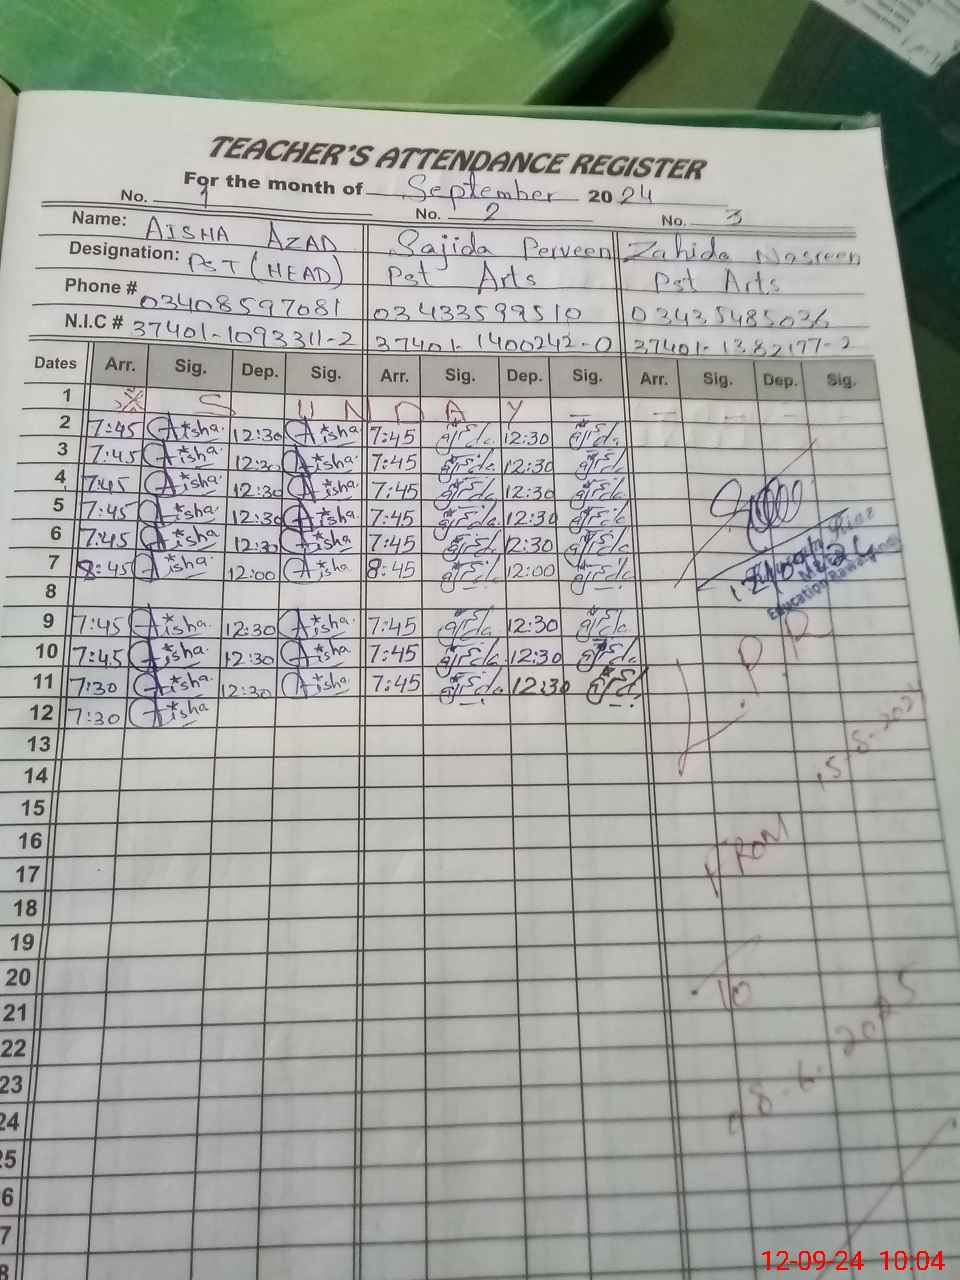 TEACHER'S ATTENDANCE REGISTER
For the month of September 2024
No. 1 No. 2 No. 3
Name: AISHA AZAD Sajida Perveen Zahida Nasreen
Designation: PST (HEAD) Pst Arts Pst Arts
Phone # 03408597081 03433599510 03435485036
N.I.C # 37401-1093311-2 37401-1400242-0 37401-1382177-2
Dates Arr. Sig. Dep. Sig. Arr. Sig. Dep. Sig. Arr. Sig. Dep. Sig.
1 S U N D A Y
2 7:45 Aisha 12:30 Aisha 7:45 12:30
3 7:45 Aisha 12:30 Aisha 7:45 12:30
4 7:45 Aisha 12:30 Aisha 7:45 12:30
5 7:45 Aisha 12:30 Aisha 7:45 12:30
6 7:45 Aisha 12:30 Aisha 7:45 12:30
7 8:45 Aisha 12:00 Aisha 8:45 12:00
8
9 7:45 Aisha 12:30 Aisha 7:45 12:30
10 7:45 Aisha 12:30 Aisha 7:45 12:30
11 7:30 Aisha 12:30 Aisha 7:45 12:30
12 7:30 Aisha
Education Rawalpindi
L.P.R
13
14
15
16
FROM
17
18
19
20
TO
21
22
23
24
25
6
7
8
12-09-24 10:04